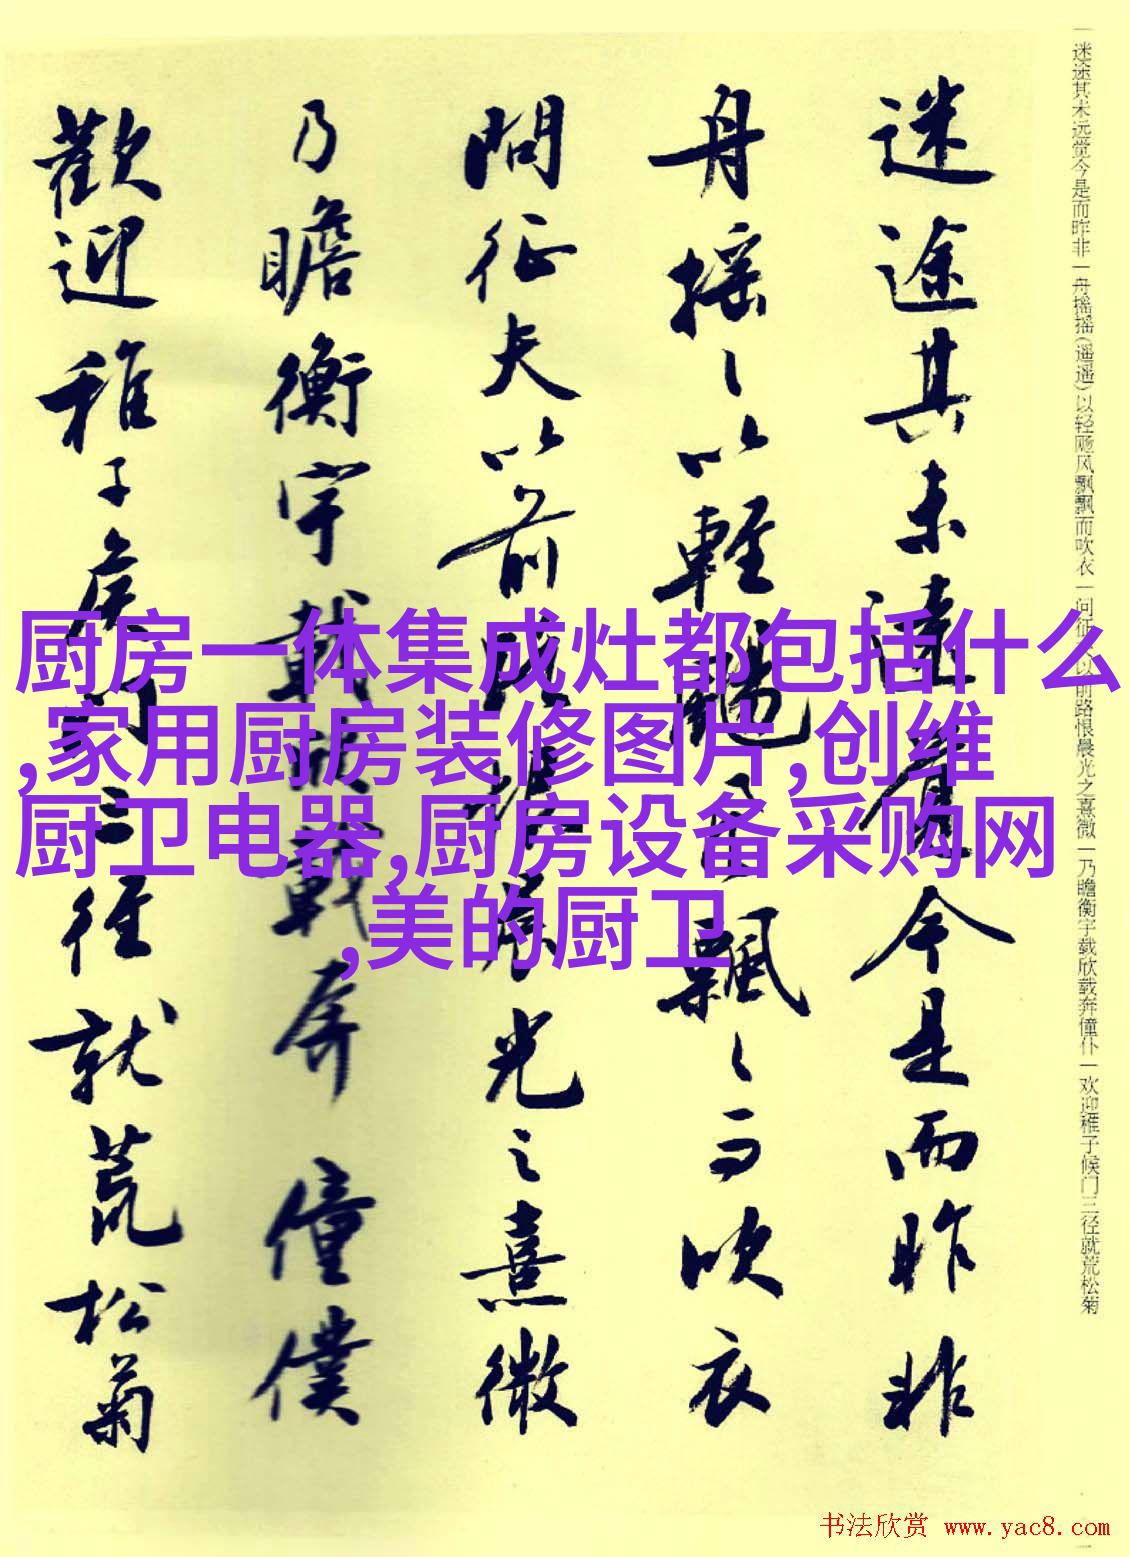 一迷途其未远觉今是而昨非一舟摇摇(遥遥)以轻飏风飘飘而吹衣一问征以前路恨晨光之熹微一乃瞻衡宇载欣载奔僮仆一欢迎稚子候门三径就荒松菊
迷途其未遠覺今是而昨非
舟摇〻以輕颺風飄〻而吹衣
問征夫以前路恨晨光之熹微
乃瞻衡宇載欣載奔僮僕
歡迎稚子候門三徑就荒松菊
厨房一体集成灶都包括什么
,家用厨房装修图片,创维
厨卫电器,厨房设备采购网
,美的厨卫
书法欣赏 www.yac8.com